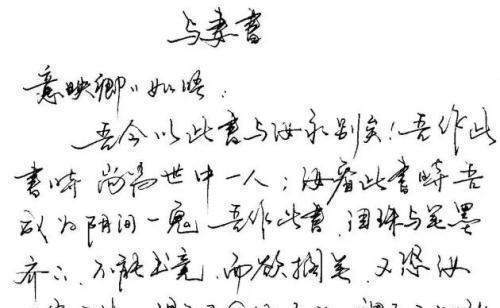 与妻书
意映卿卿如晤:
吾今以此书与汝永别矣!吾作此
书时尚为世中一人;汝看此书时吾
成为阴间一鬼 吾作此书 泪珠与笔墨
齐下、不能书竟 而欲搁笔、又恐汝